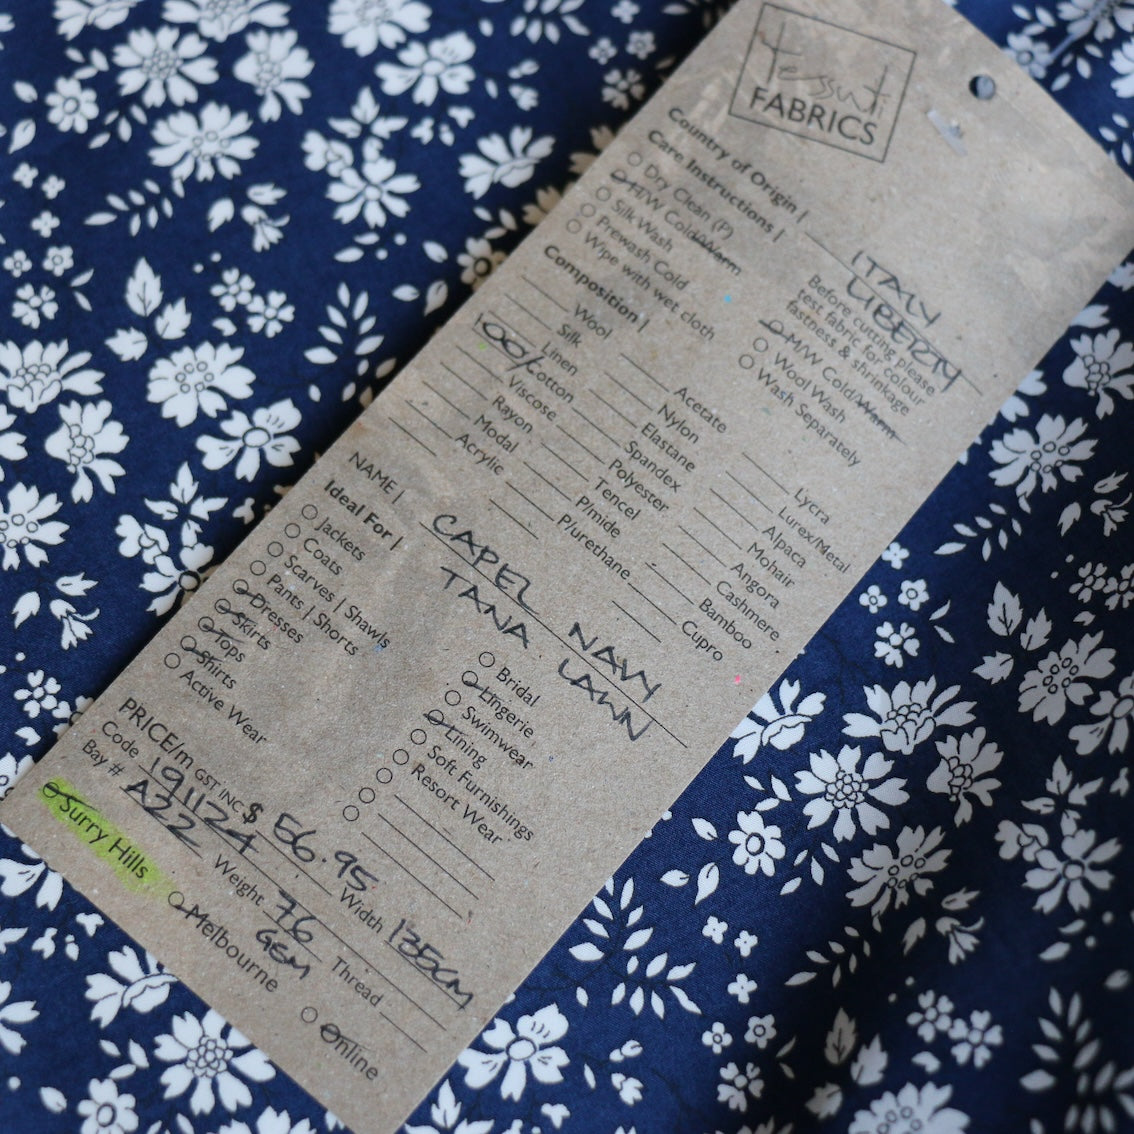 tessuti
FABRICS
Country of Origin | ITALY
LIBERTY
Care Instructions |
Dry Clean (P)
H/W Cold/Warm
Silk Wash
Prewash Cold
Wipe with wet cloth
Before cutting please
test fabric for colour
fastness & shrinkage
M/W Cold/Warm
Wool Wash
Wash Separately
Composition |
Wool
Silk
Linen
100% Cotton
Viscose
Rayon
Modal
Acrylic
Acetate
Nylon
Elastane
Spandex
Polyester
Tencel
P/mide
P/urethane
Lycra
Lurex/Metal
Alpaca
Mohair
Angora
Cashmere
Bamboo
Cupro
NAME | CAPEL NAVY
TANA LAWN
Ideal For |
Jackets
Coats
Scarves | Shawls
Pants | Shorts
Dresses
Skirts
Tops
Shirts
Active Wear
Bridal
Lingerie
Swimwear
Lining
Soft Furnishings
Resort Wear
PRICE/m GST INC $ 56.95
Code 191124 Width 135CM
Bay # A22 Weight 76 GSM Thread
Surry Hills Melbourne Online